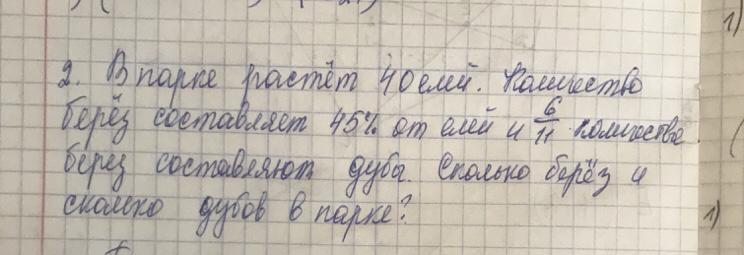 2. В парке растёт 40 елей. Количество
берёз составляет 45% от елей и 6/11 количества
берез составляют дубы. Сколько берёз и
сколько дубов в парке?
1)
1)